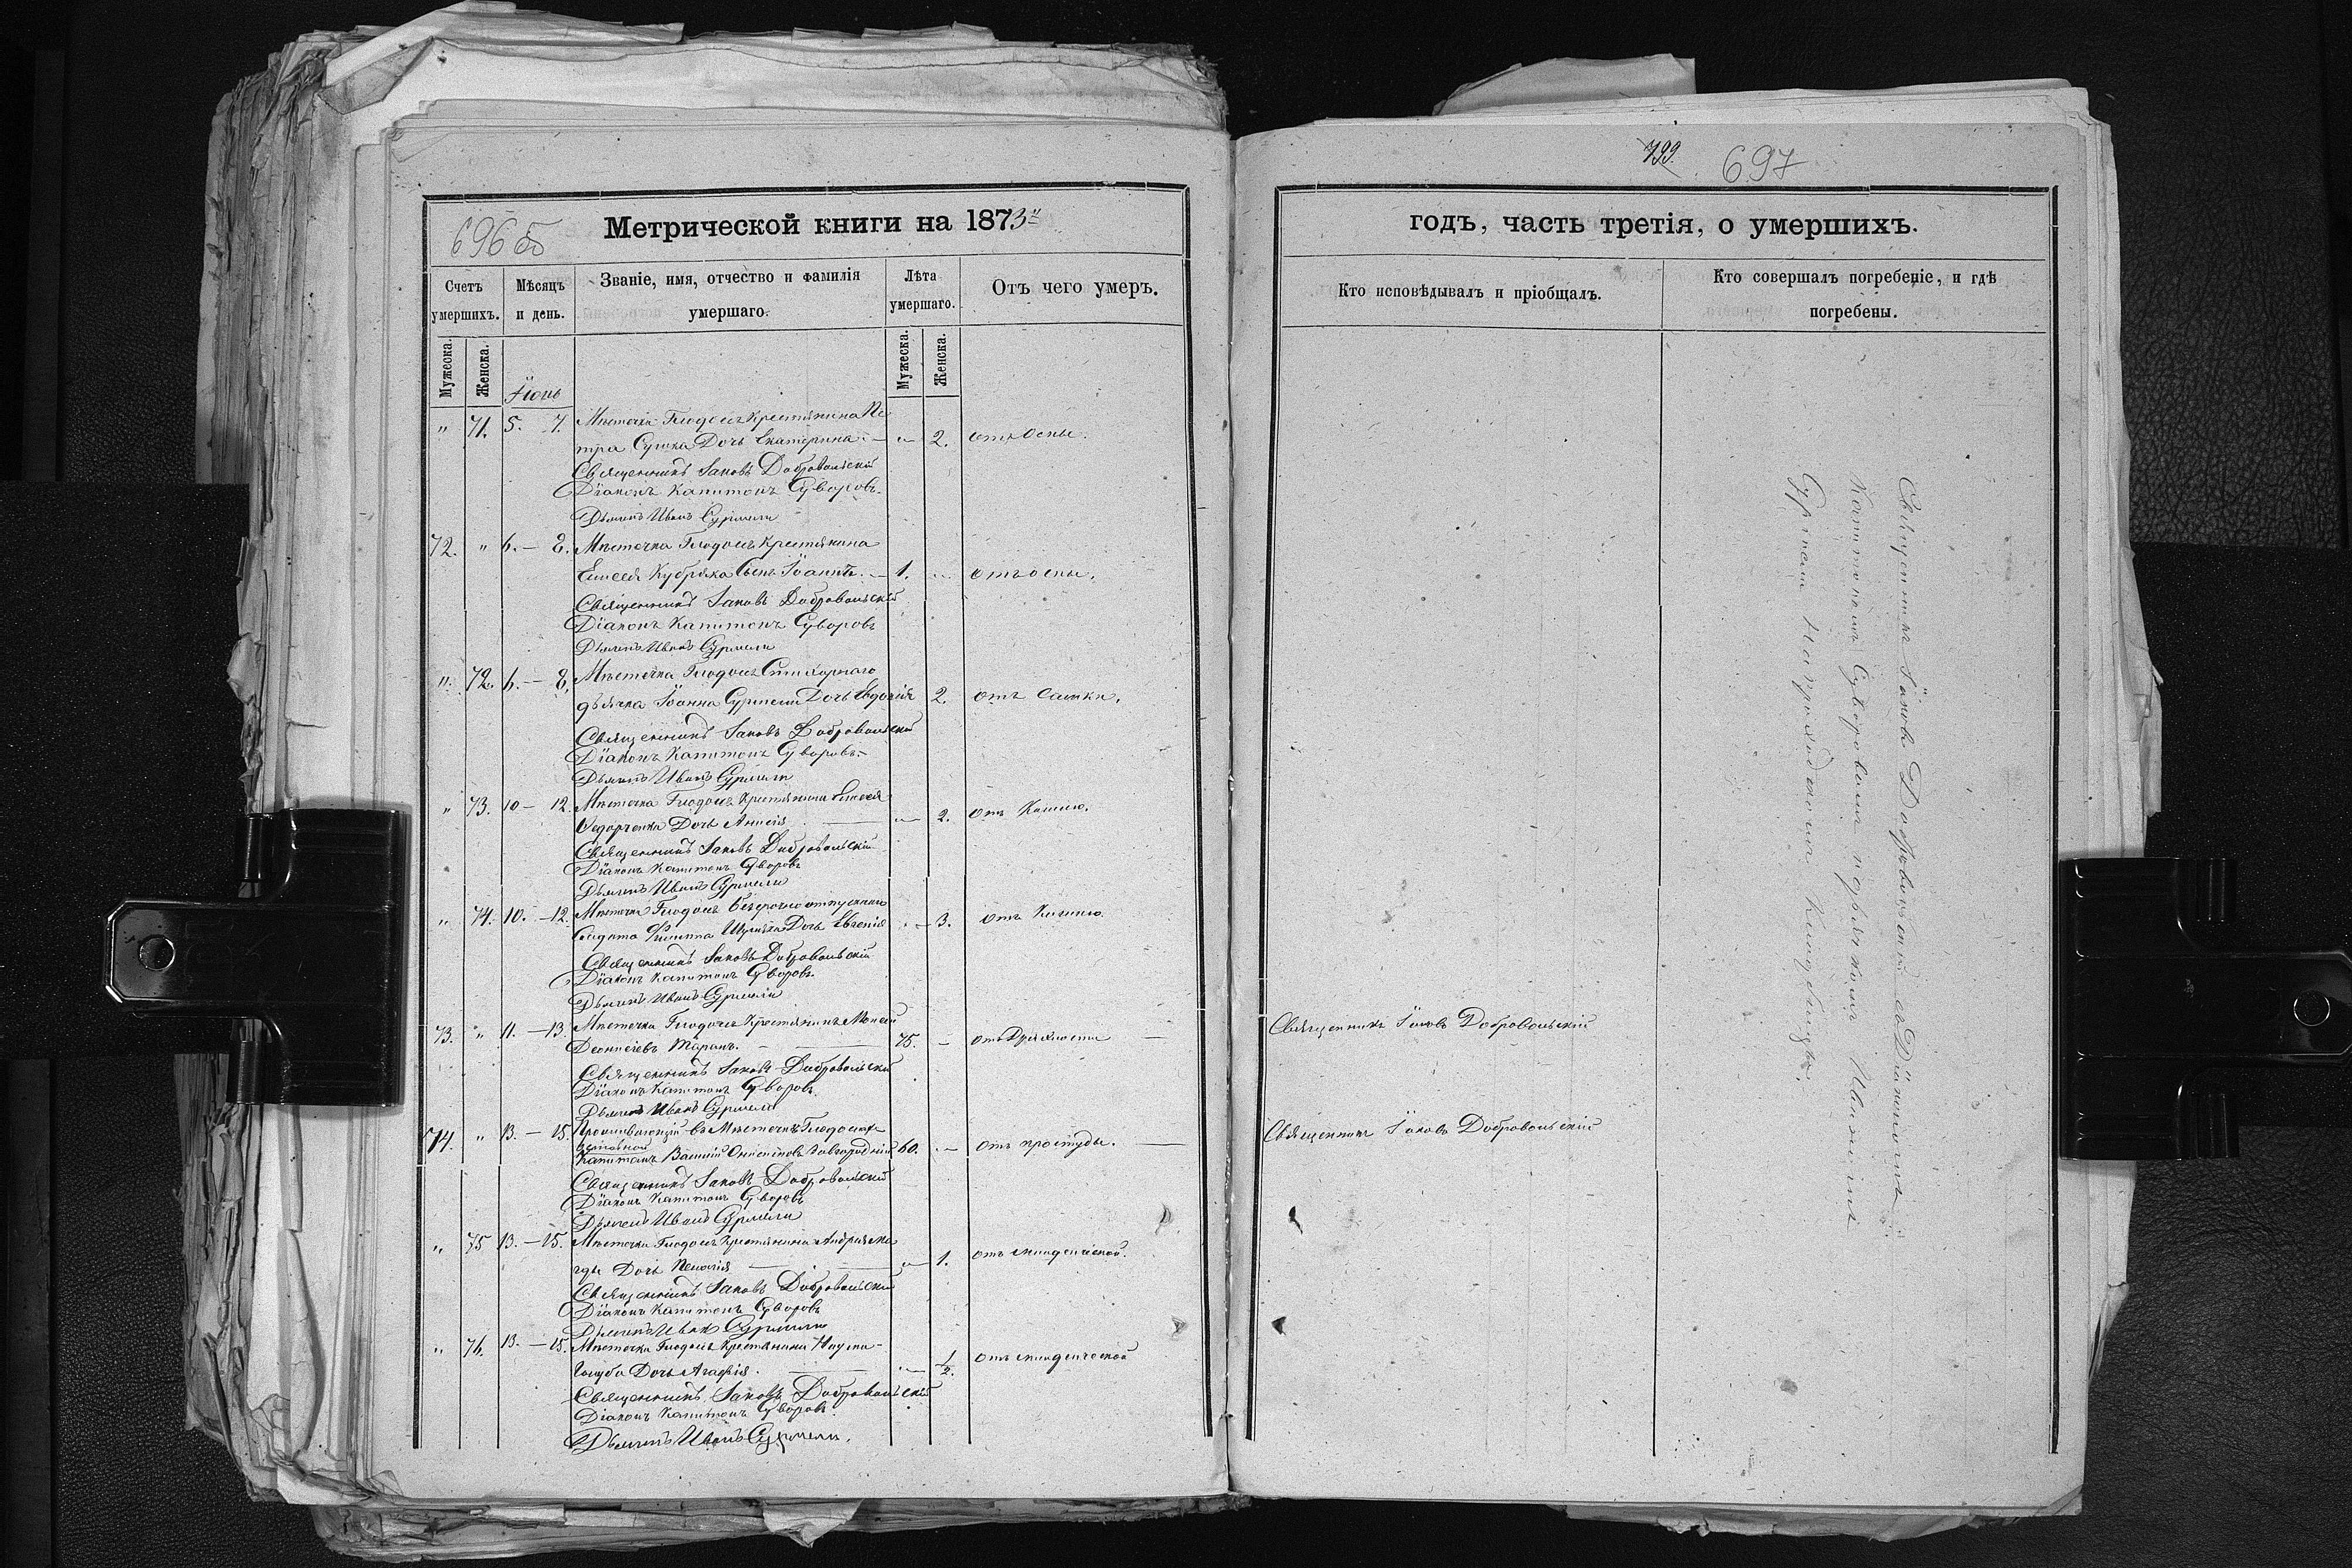 696 об
Метрической книги на 1873й
Счетъ умершихъ.
Мѣсяцъ и день.
Званіе, имя, отчество и фамилія умершаго.
Лѣта умершаго.
Отъ чего умеръ.
Мужеска.
Женска.
Мужеска.
Женска.
Іюнь
" 71. 5. 7. Мѣстечка Глодосъ Крестьянина Пе
тра Сушка Дочь Екатерина. — " — 2. отъ Оспы.
Священникъ Іаковъ Добровольскій
Діаконъ Капитонъ Суворовъ.
Дьячекъ Иванъ
72. " 6. — 8. Мѣстечка Глодосъ Крестьянина
Елисея Кубряка Сынъ Іоаннъ. — 1. отъ оспы.
Священникъ Іаковъ Добровольскій
Діаконъ Капитонъ Суворовъ
Дьячекъ Иванъ
" 72. 6. — 8. Мѣстечка Глодосъ Стихарнаго
дьячка Іоанна Дочь Евдокія 2. отъ
Священникъ Іаковъ Добровольскій
Діаконъ Капитонъ Суворовъ.
Дьячекъ Иванъ
" 73. 10 — 12. Мѣстечка Глодосъ Крестьянина Елисея
Федорченка Дочь Анисія — " — 2. отъ Кашлю.
Священникъ Іаковъ Добровольскій
Діаконъ Капитонъ Суворовъ
Дьячекъ Иванъ
" 74. 10. — 12. Мѣстечка Глодосъ безсрочно отпускнаго
Солдата Филиппа Дочь Евгенія — 3. отъ Кашлю.
Священникъ Іаковъ Добровольскій
Діаконъ Капитонъ Суворовъ.
Дьячекъ Иванъ
73. " 11. — 13 Мѣстечка Глодосъ Крестьянинъ Моисей
Леонтіевъ Таранъ. — 75. — отъ Дряхлости —
Священникъ Іаковъ Добровольскій
Діаконъ Капитонъ Суворовъ.
Дьячекъ Иванъ
74. " 13. — 15. Проживающій въ Мѣстечкѣ Глодосахъ
Капитанъ Василій 60. — отъ простуды. —
Священникъ Іаковъ Добровольскій
Діаконъ Капитонъ Суворовъ
Дьячекъ Иванъ
" 75 13. — 15. Мѣстечка Глодосъ Крестьянина Андрея
Дочь Пелагія — " — 1. отъ младенческой.
Священникъ Іаковъ Добровольскій
Діаконъ Капитонъ Суворовъ
Дьячекъ Иванъ
" 76. 13. — 15. Мѣстечка Глодосъ Крестьянина Наума
Голуба Дочь Агафія. — 1/2. отъ младенческой
Священникъ Іаковъ Добровольскій
Діаконъ Капитонъ Суворовъ.
Дьячекъ Иванъ
799.
697
годъ, часть третія, о умершихъ.
Кто исповѣдывалъ и пріобщалъ.
Кто совершалъ погребеніе, и гдѣ погребены.
Священникъ Іаковъ Добровольскій
Священникъ Іаковъ Добровольскій
Священникъ Іаковъ Добровольскій съ Діакономъ
Капитономъ Суворовымъ и дьячкомъ Иваномъ
На приходскомъ кладбищѣ.